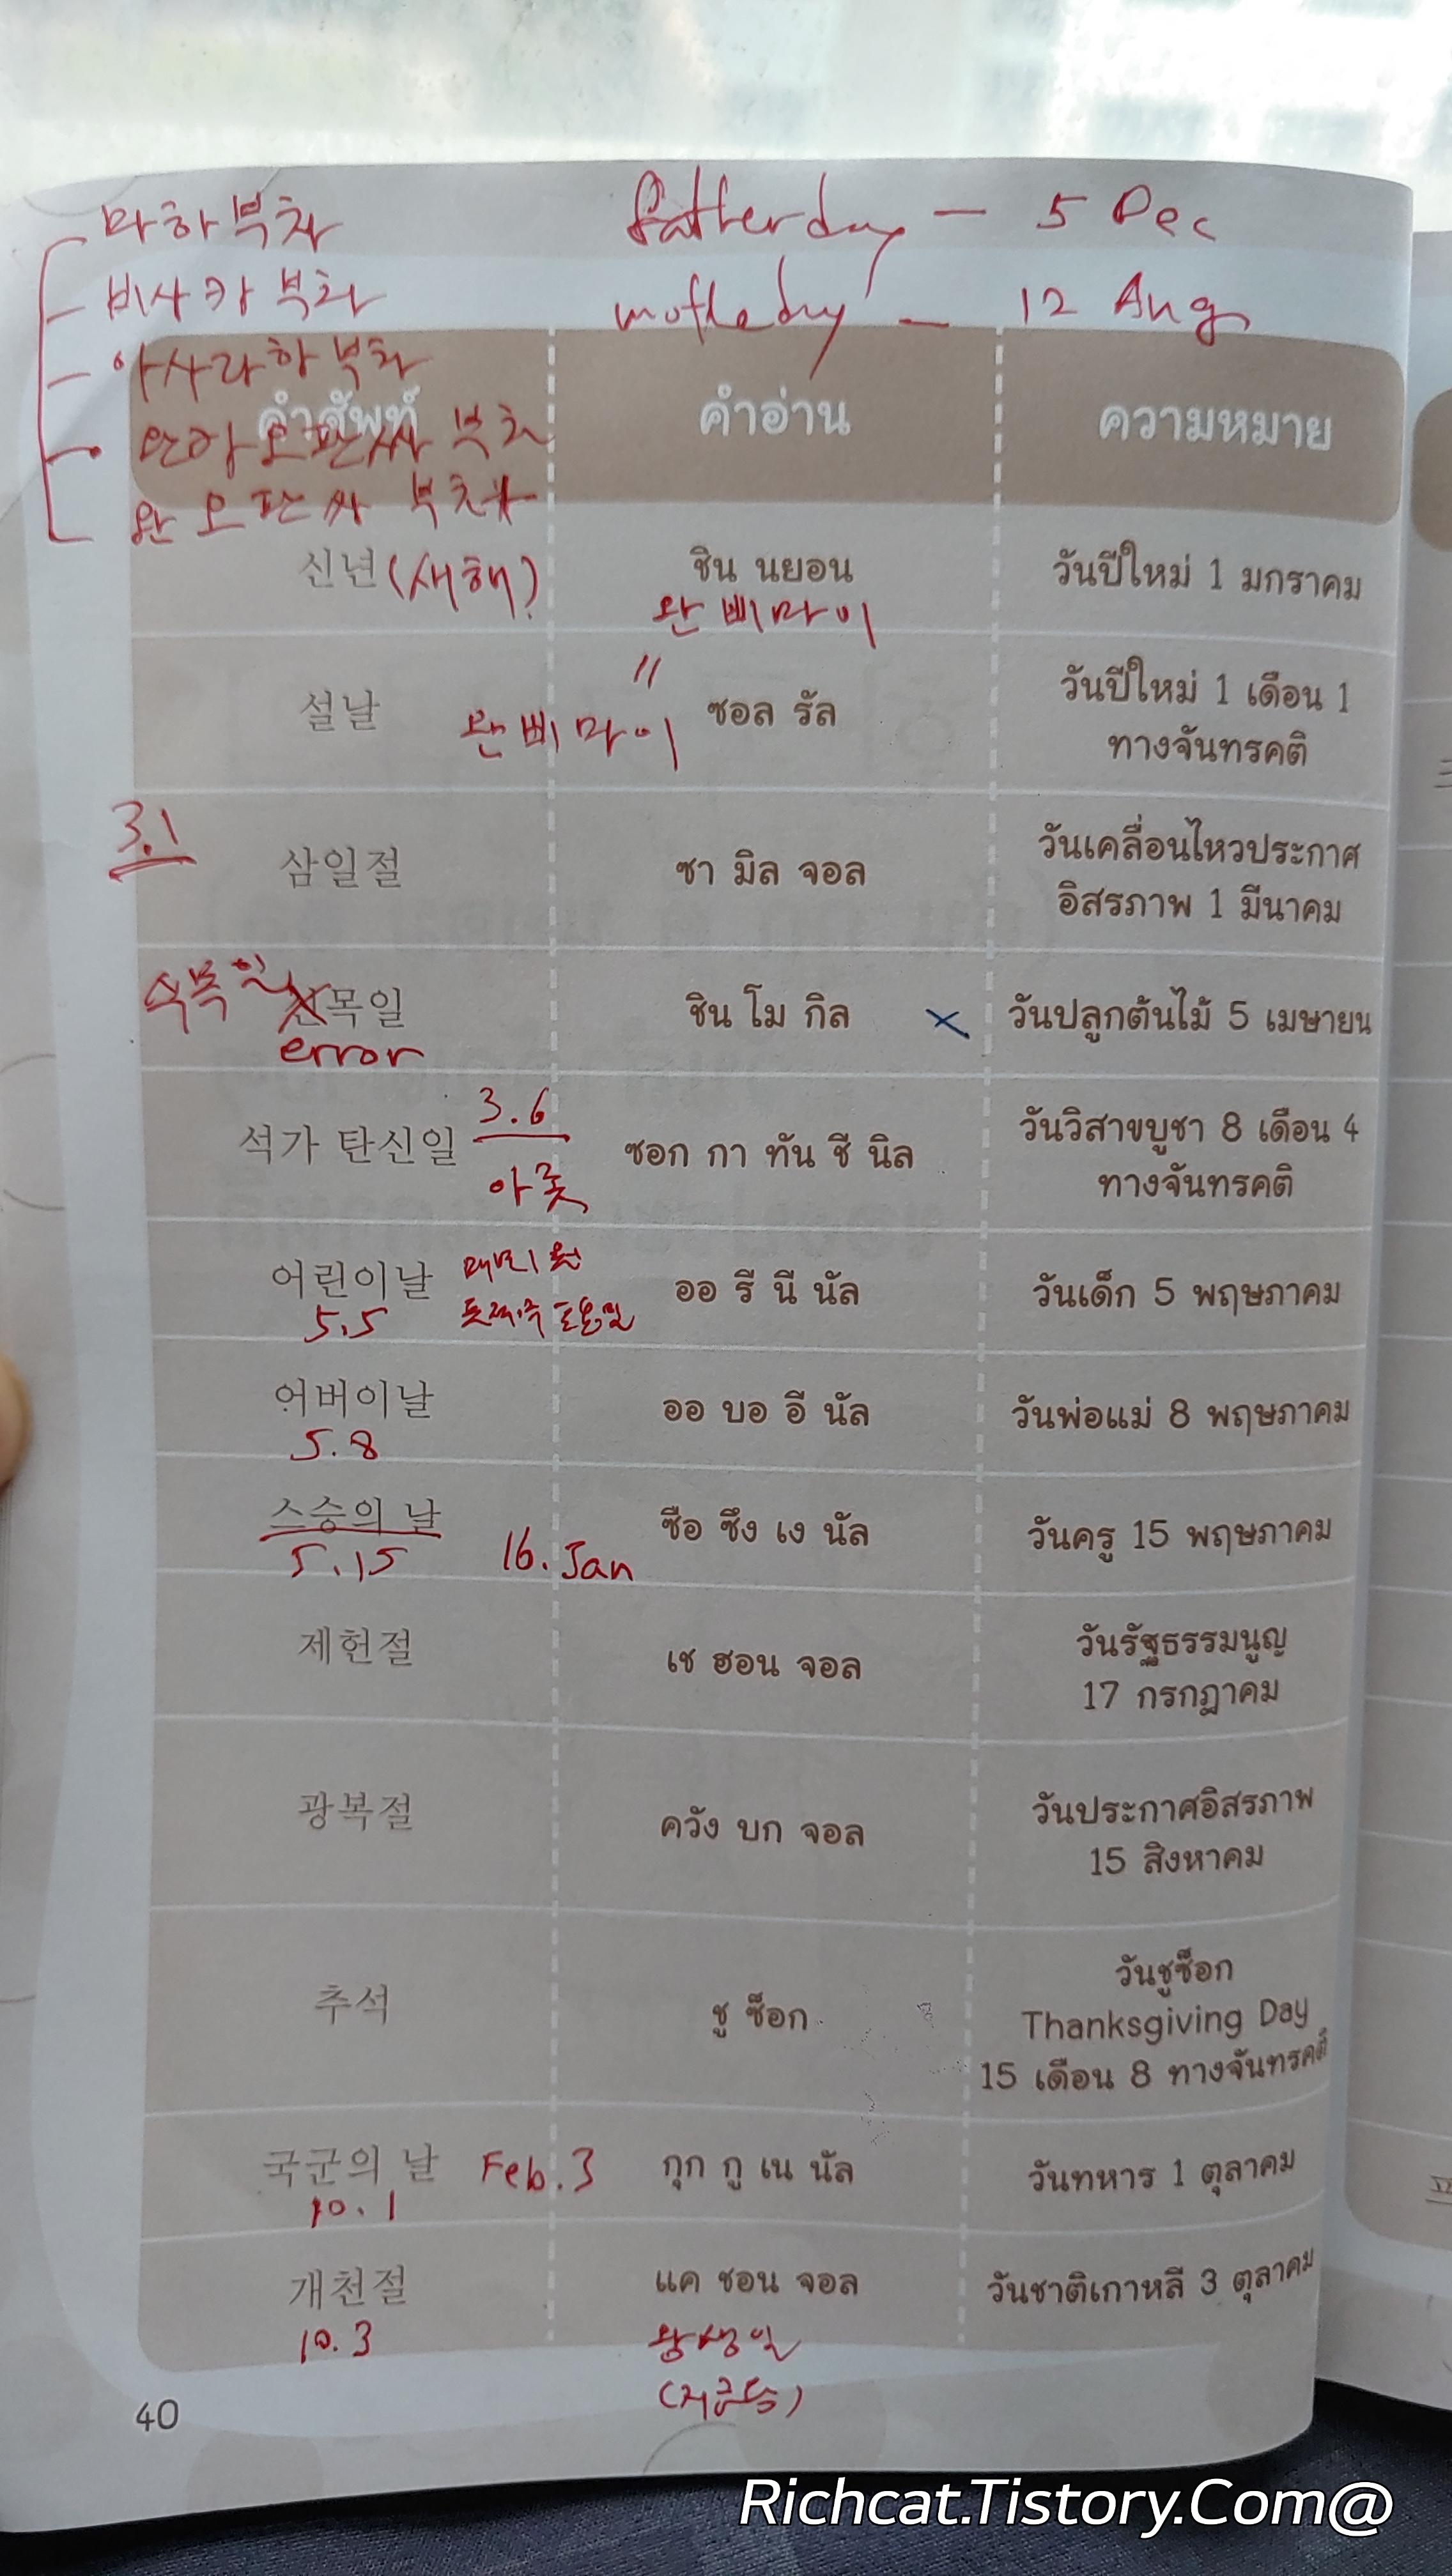 마하부차 fatherday – 5 Dec
비사카부차 motheday – 12 Aug
아사라하부차
คำศัพท์ คำอ่าน ความหมาย
완 오판싸 부차
신년 (새해) ชิน นยอน วันปีใหม่ 1 มกราคม
완 삐마이
설날 완 삐 마이 〃 ซอล รัล วันปีใหม่ 1 เดือน 1
ทางจันทรคติ
3.1 삼일절 ซา มิล จอล วันเคลื่อนไหวประกาศ
อิสรภาพ 1 มีนาคม
식목일 신목일 ชิน โม กิล × วันปลูกต้นไม้ 5 เมษายน
error
석가 탄신일 3.6 ซอก กา ทัน ชี นิล วันวิสาขบูชา 8 เดือน 4
ทางจันทรคติ
어린이날 ออ รี นี นัล วันเด็ก 5 พฤษภาคม
5.5 토요일
어버이날 ออ บอ อี นัล วันพ่อแม่ 8 พฤษภาคม
5.8
스승의 날 ซือ ซึง เง นัล วันครู 15 พฤษภาคม
5.15 16. Jan
제헌절 เช ฮอน จอล วันรัฐธรรมนูญ
17 กรกฎาคม
광복절 ควัง บก จอล วันประกาศอิสรภาพ
15 สิงหาคม
추석 ชู ซ็อก วันชูซ็อก
Thanksgiving Day
15 เดือน 8 ทางจันทรคติ
국군의 날 Feb.3 กุก กู เน นัล วันทหาร 1 ตุลาคม
10.1
개천절 แค ชอน จอล วันชาติเกาหลี 3 ตุลาคม
10.3 왕생일
40
Richcat.Tistory.Com@